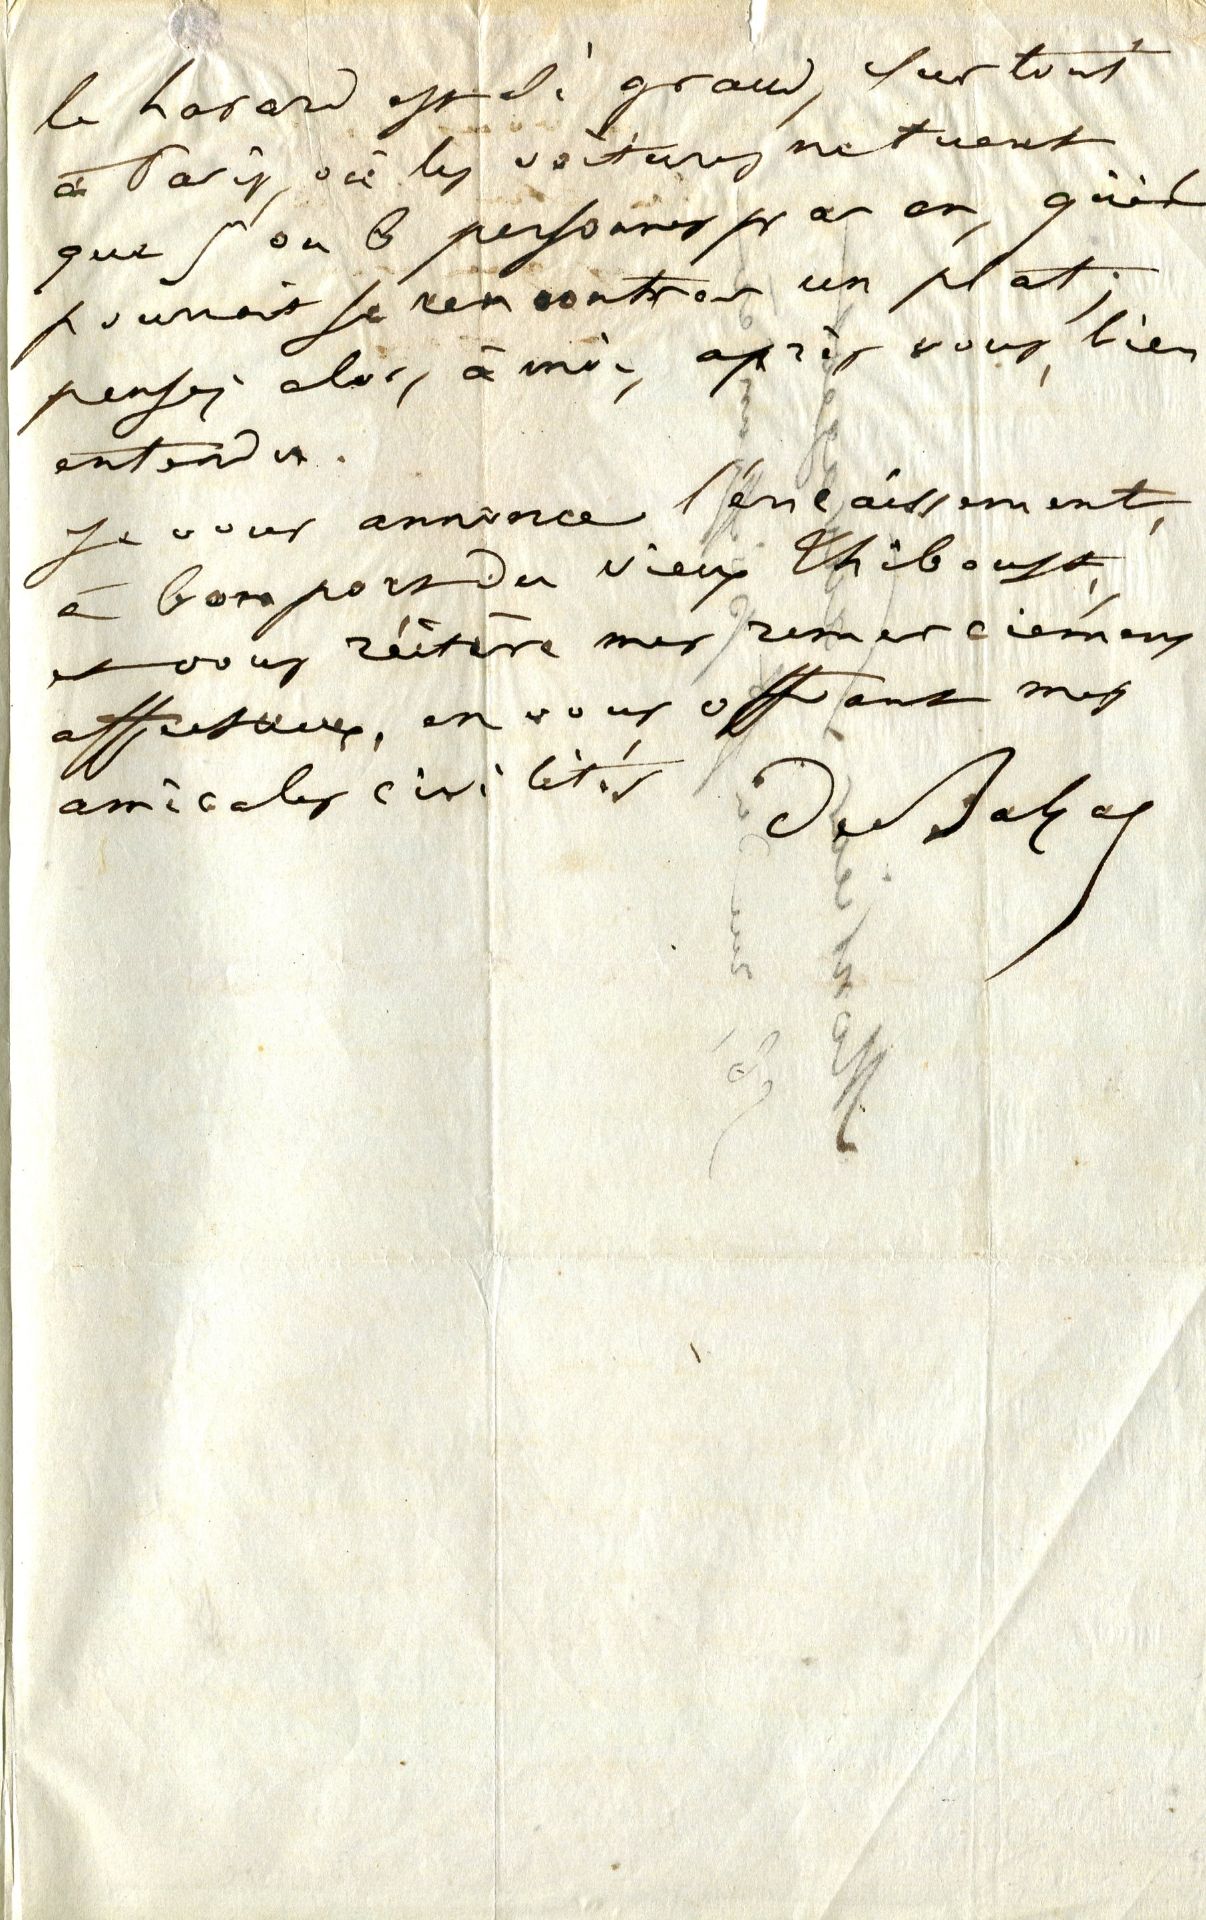 le hasard est si grand, surtout
à Paris, où les voitures ne tuent
que 5 ou 6 personnes par an, qu'il
pourrait se rencontrer un plat;
pensez alors, à moi, après vous, bien
entendu.
Je vous annonce l'encaissement,
à bon port du vieux Thiboust,
et vous réitère mes remerciemens
affectueux, en vous offrant mes
amicales civilités
De Balzac